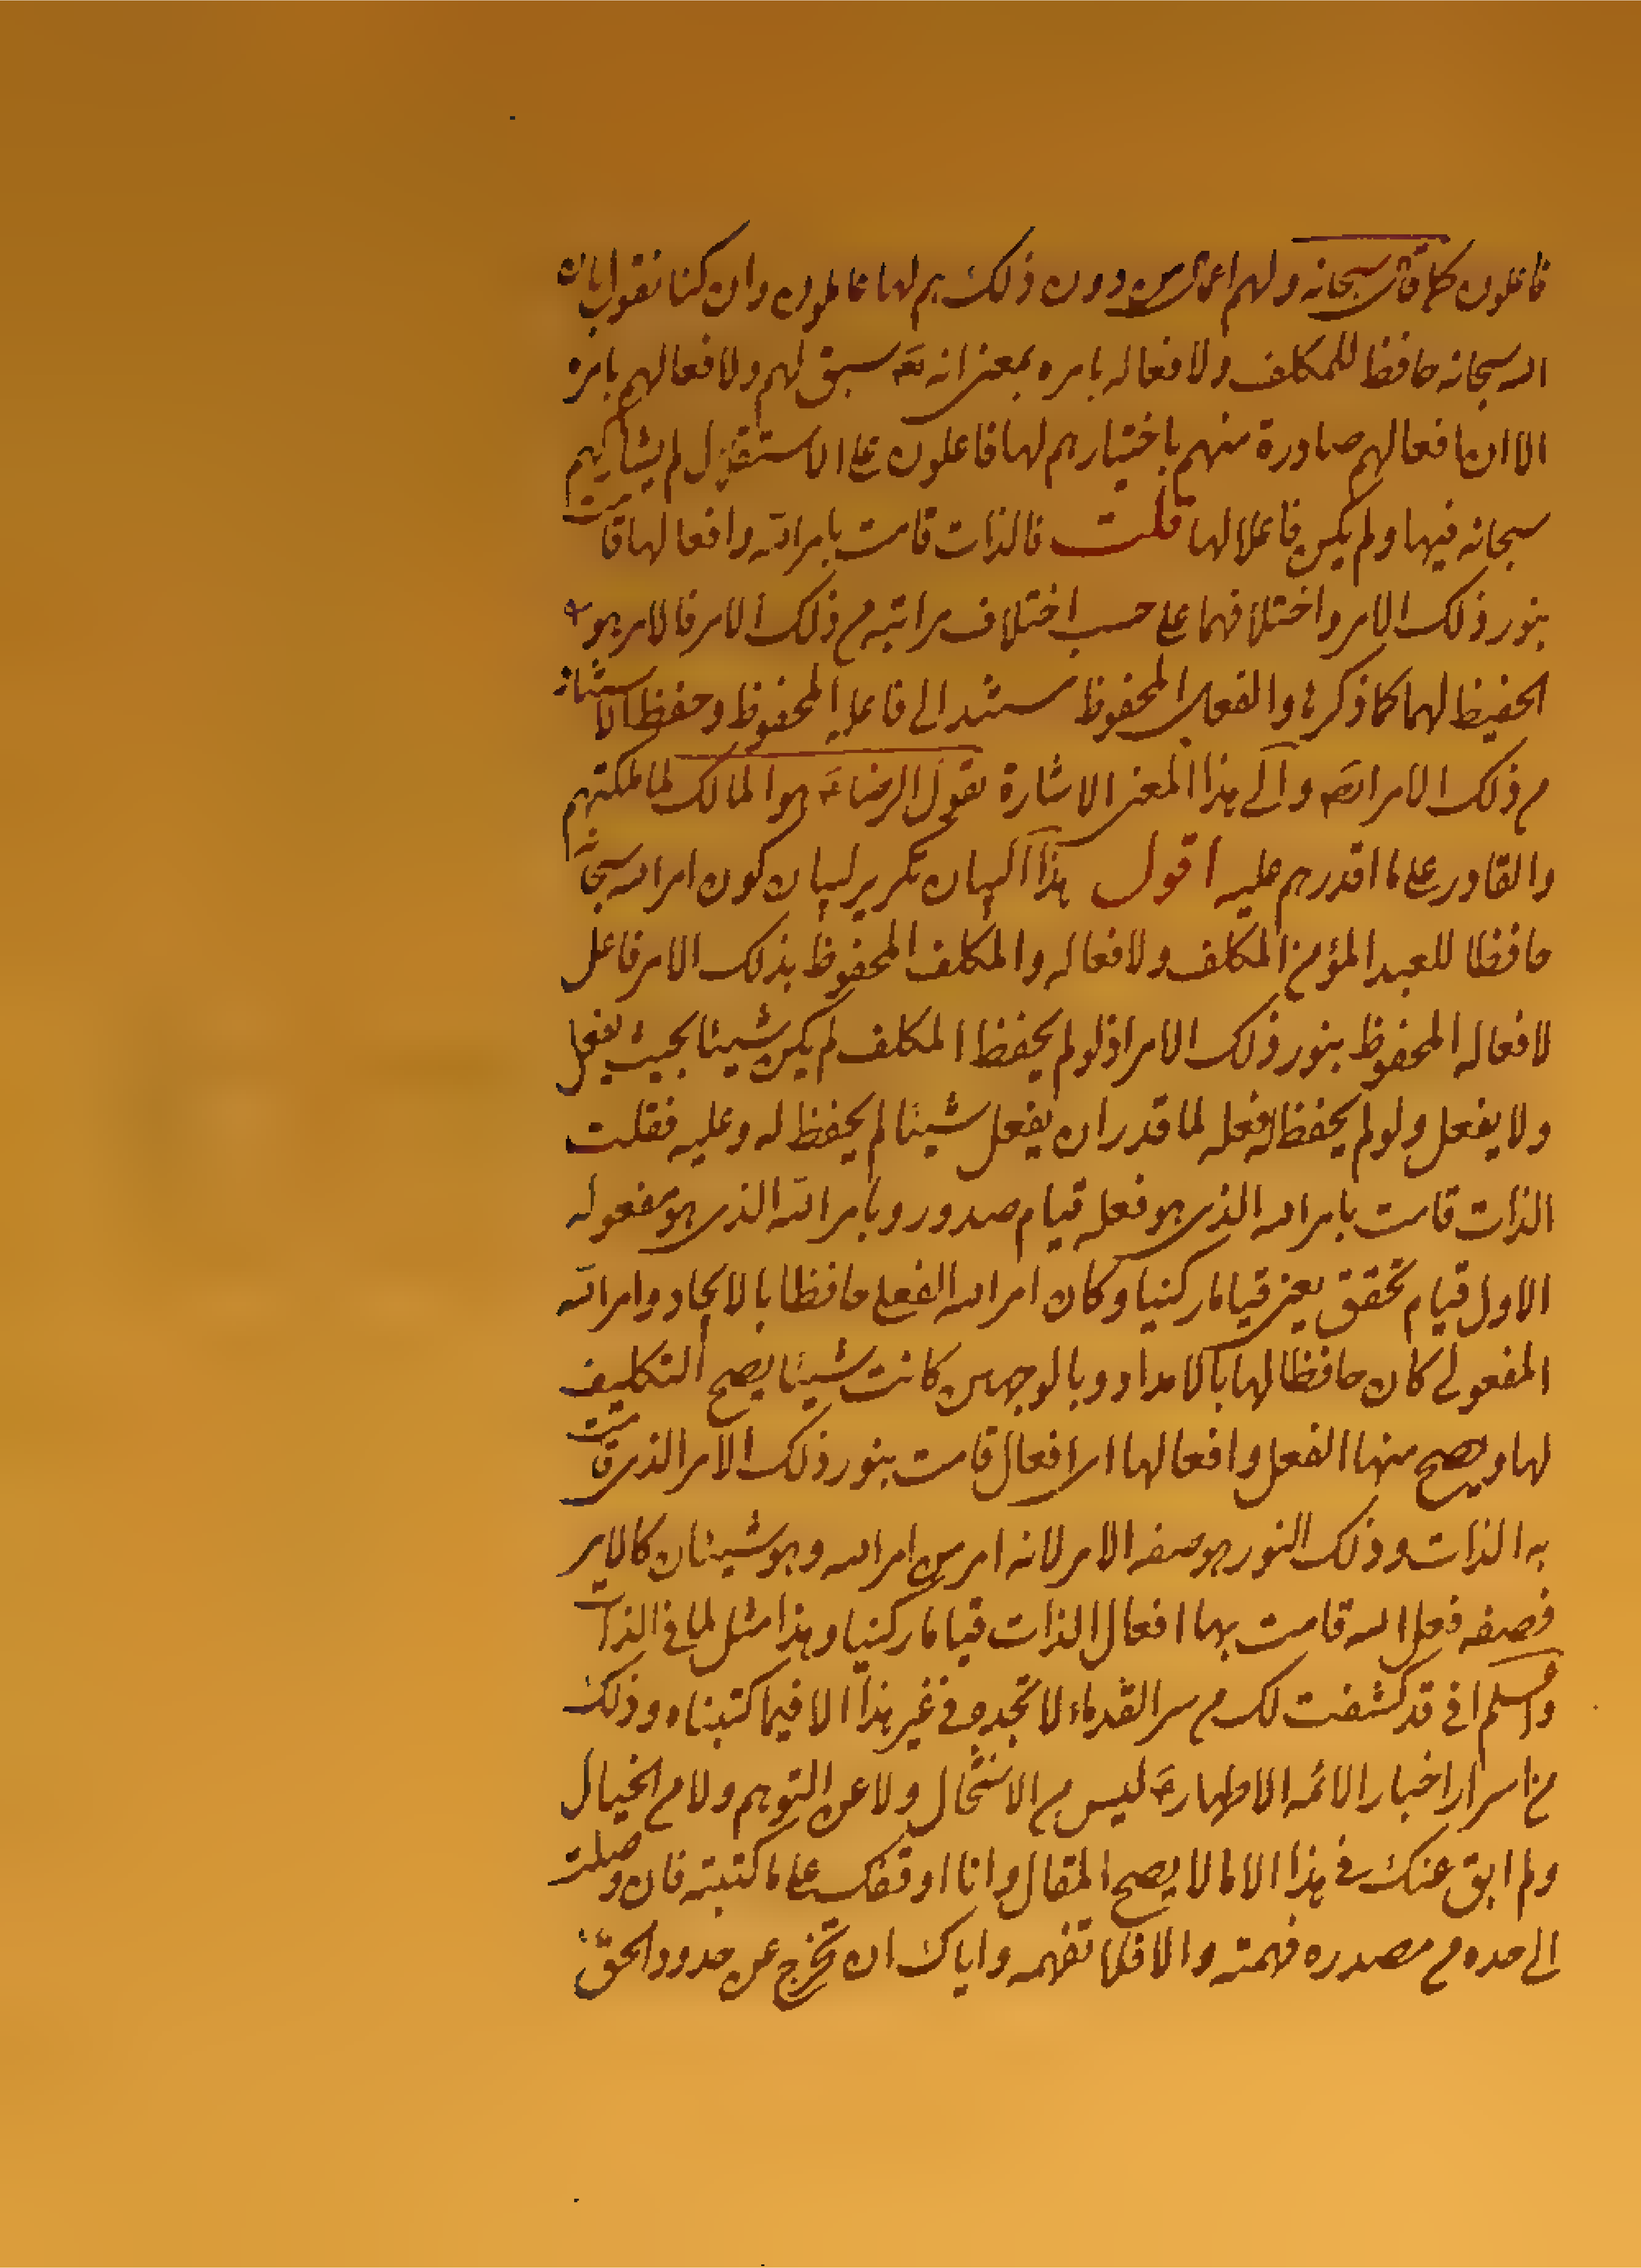 فاعلون كما قال سبحانه ولهم اعمال من دون ذلك هم لها عاملون وان كنا نقول بان
الله سبحانه حافظا للمكلف ولافعاله بامره بمعنى انه تع سبق لهم ولافعالهم بامره
الا ان افعالهم صادرة منهم باختيارهم لها فاعلون على الاستقلال لم يشاركهم
سبحانه فيها ولم يكن فاعلا لها قلت فالذات قامت بامر الله وافعالها قامت
بنور ذلك الامر واختلافهما على حسب اختلاف مراتبه من ذلك الامر فالامر هو
الحفيظ لهما كما ذكرنا والفعل المحفوظ يستند الى فاعله المحفوظ وحفظ الاستناد
من ذلك الامر ايضا والى هذا المعنى الاشارة بقول الرضا ع هو المالك لما ملكهم
والقادر على ما اقدرهم عليه اقول هذا البيان تكرير لبيان كون امر الله سبحانه
حافظا للعبد المؤمن المكلف ولافعاله والمكلف المحفوظ بذلك الامر فاعل
لافعاله المحفوظ بنور ذلك الامر اذ لو لم يحفظ المكلف لم يكن شيئا بحيث يفعل
ولا يفعل ولو لم يحفظ له فعله لما قدر ان يفعل شيئا لم يحفظ له وعليه فقلت
الذات قامت بامر الله الذى هو فعله قيام صدور وبامر الله الذى هو مفعوله
الاول قيام تحقق يعنى قياما ركنيا وكان امر الله الفعلى حافظا بالايجاد وامر الله
المفعولى كان حافظا لها بالامداد وبالوجهين كانت شيئا يصح التكليف
لها ويصح منها الفعل وافعالها اى افعال قامت بنور ذلك الامر الذى قامت
به الذات وذلك النور هو صفه الامر لانه امر من امر الله وهو شيئان كالامر
فصفه فعل الله قامت بها افعال الذات قياما ركنيا وهذا مثل لما فى الذات
واعلم انى قد كشفت لك من سر القدر ما لا تجده فى غير هذا الا فيما كتبناه وذلك
من اسرار اخبار الائمه الاطهار ع ليس من الانتحال ولا عن التوهم ولا من الخيال
ولم ابق عنك فى هذا الا ما لا يصح المقال وانا اوقفك على ما كتبته فان وصلت
الى حده من مصدره فهمته والا فلما تفهمه واياك ان تخرج عن حدود الحق